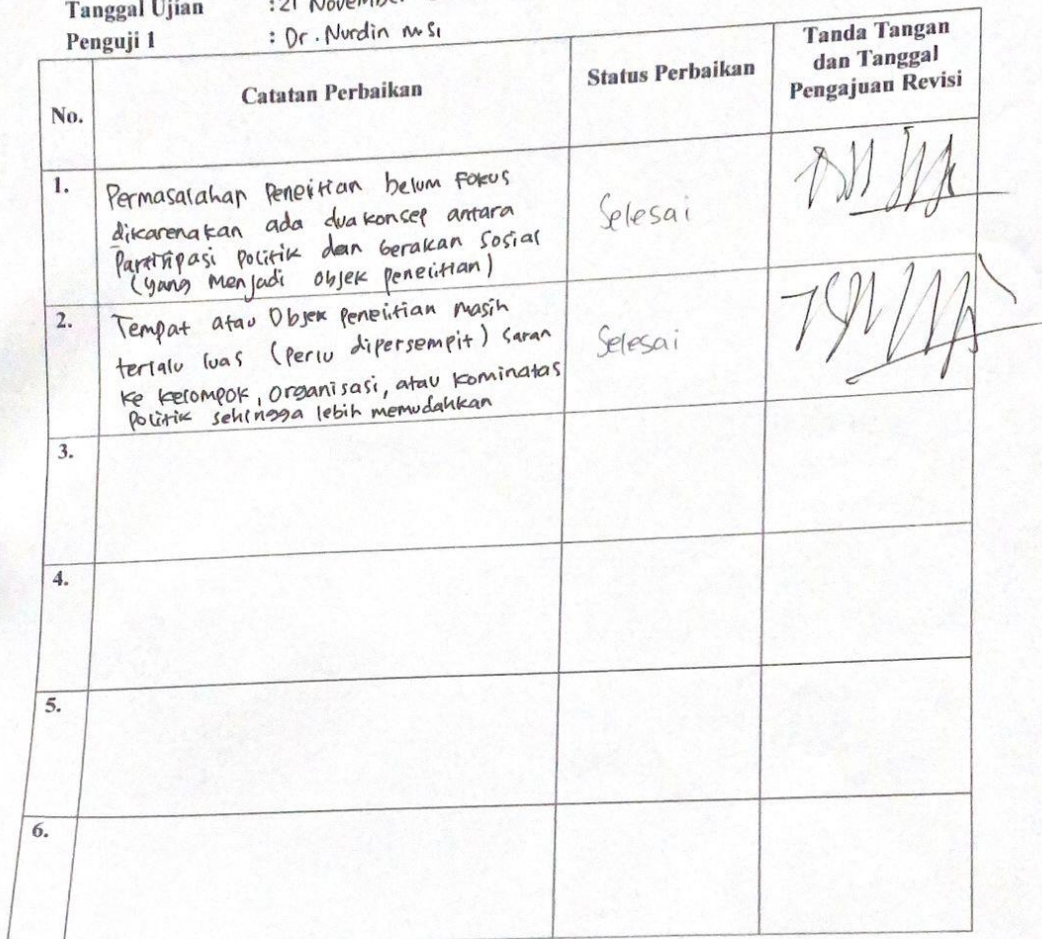 Tanggal Ujian : 21 November
Penguji 1 : Dr. Nurdin M.Si
No. Catatan Perbaikan Status Perbaikan Tanda Tangan dan Tanggal Pengajuan Revisi
1. Permasalahan Penelitian belum Fokus
dikarenakan ada dua konsep antara
Partisipasi Politik dan Gerakan Sosial
(yang Menjadi objek penelitian)
Selesai
2. Tempat atau Objek penelitian masih
terlalu luas (Perlu dipersempit) Saran
Ke Kelompok, Organisasi, atau Kominatas
Politik sehingga lebih memudahkan
Selesai
3.
4.
5.
6.